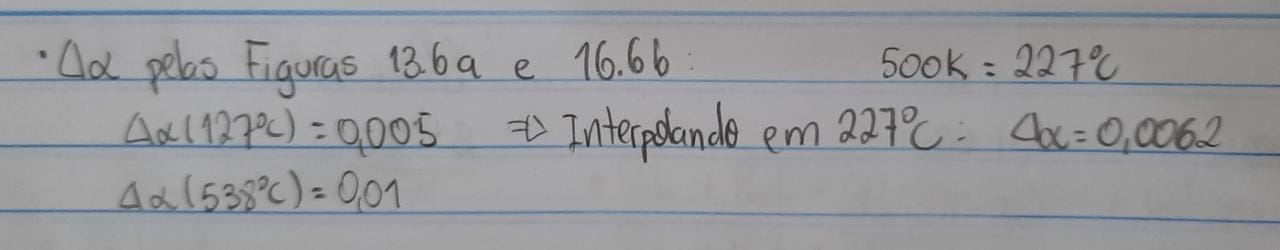 · Δα pelas Figuras 13.6a e 16.6b: 500K = 227°C
Δα(127°C) = 0,005 ⇒ Interpolando em 227°C: Δα = 0,0062
Δα(538°C) = 0,01